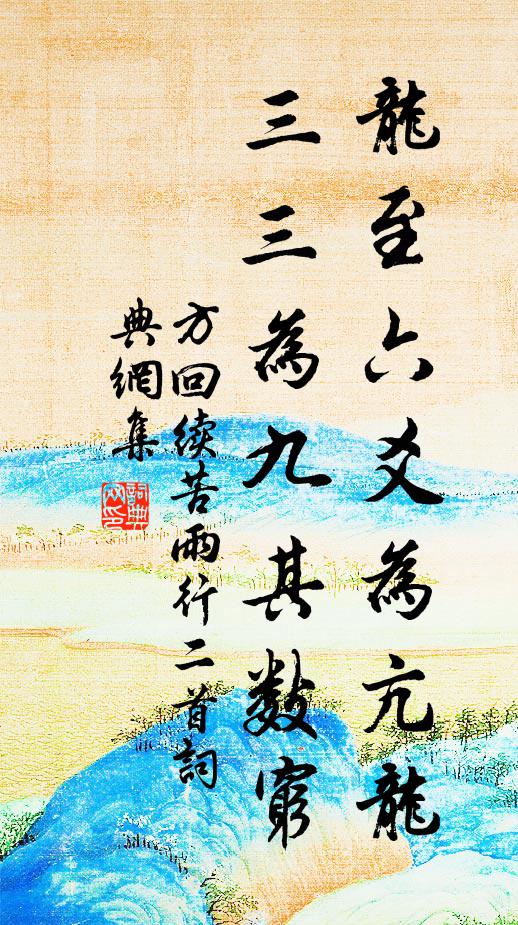 龍至六爻為亢龍
三三為九其數窮
方回續苦雨行二首詞
典網集
詞典網印